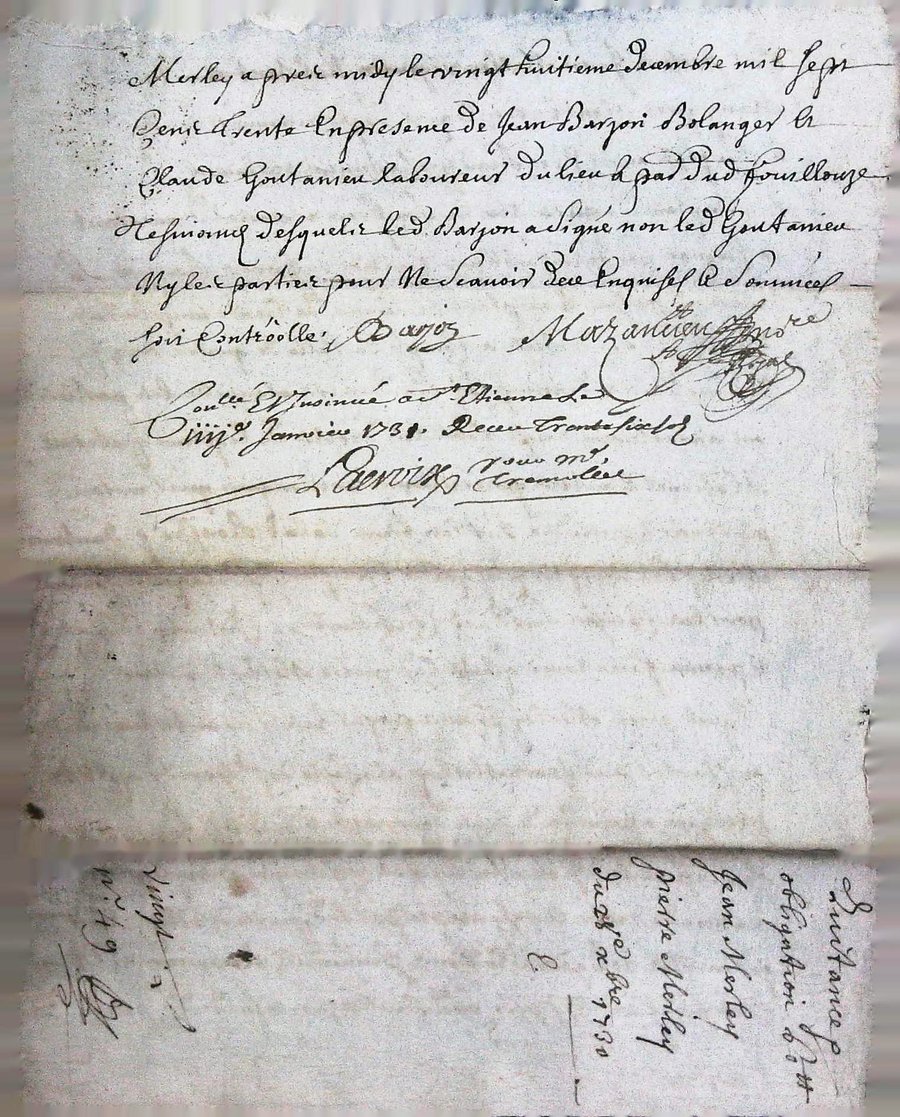 Merley apres midy le vingt huitieme decembre mil sept
Cent trente En presence de Jean Barjon Bolanger et
Claude Goutanieu laboureur du lieu & par dud fouillouze
Tesmoins desquels led Barjon a signé non led Goutanieu
Ny les parties pour Ne scavoir de ce Enquises Et Sommées
soit Controolle. Barjon Mazancieu Nore
Conllé Et Insinué a St. Etienne Le
iiiije. Janvier 1731. Receu Trente six sol
Lacroix pour mr.
Tremollet
Quitance
obligation
Jean Merley
pierre Merley
du 28e xbre 1730
C
vingt
n.° 49